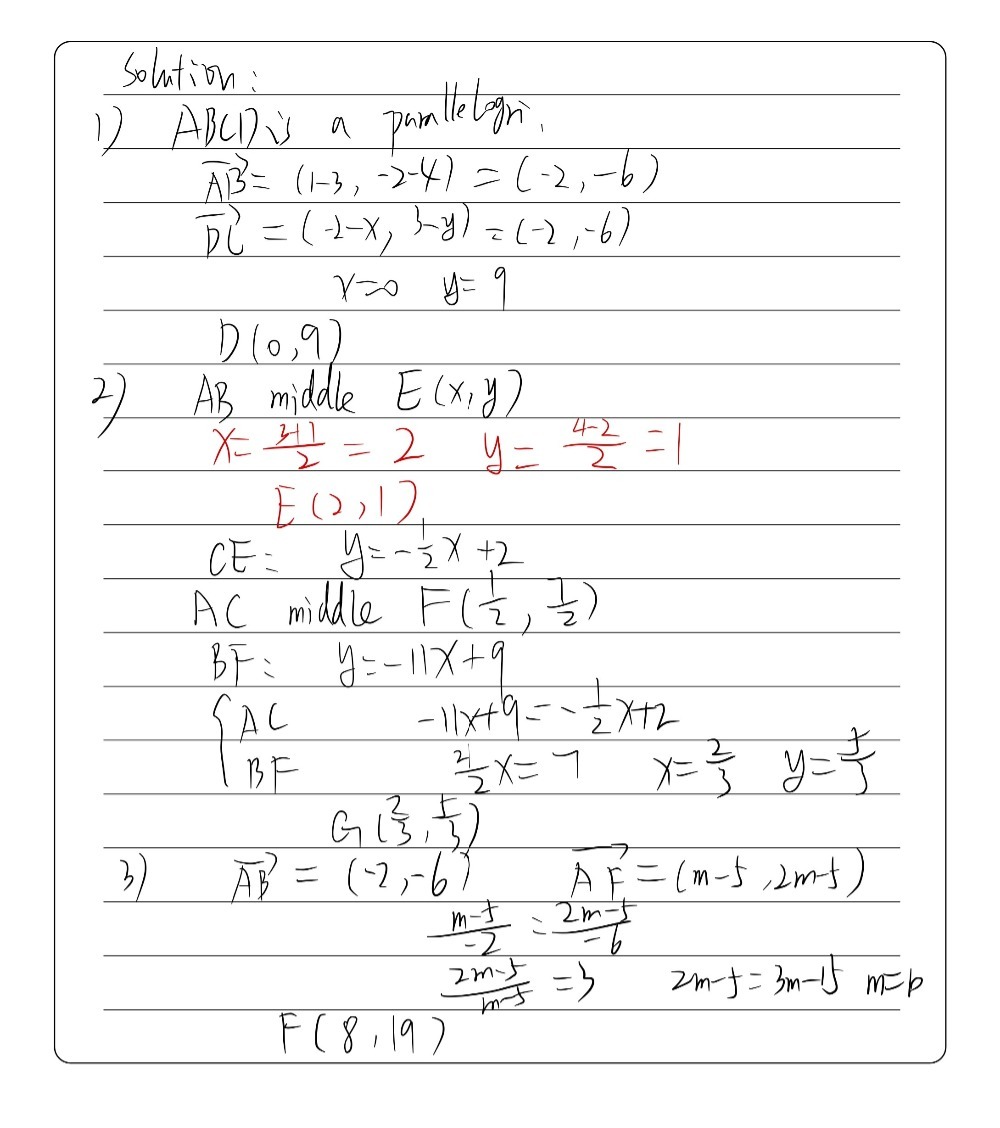 Solution:
1) ABCD is a parallelogri.
$\overrightarrow{AB}$ = (1-3, -2-4) = (-2, -6)
$\overrightarrow{DC}$ = (-2-x, 3-y) = (-2, -6)
x=0 y=9
D(0,9)
2) AB middle E(x,y)
x= $\frac{3+1}{2}$ = 2 y= $\frac{4-2}{2}$ =1
E(2,1)
CE: y=-$\frac{1}{2}$x+2
AC middle F($\frac{1}{2}$, $\frac{7}{2}$)
BF: y=-11x+9
{ AC -11x+9=-$\frac{1}{2}$x+2
BF $\frac{21}{2}$x=7 x=$\frac{2}{3}$ y=$\frac{5}{3}$
G($\frac{2}{3}$, $\frac{5}{3}$)
3) $\overrightarrow{AB}$ = (-2,-6) $\overrightarrow{AF}$ = (m-5, 2m-5)
$\frac{m-5}{-2}$ = $\frac{2m-5}{-6}$
$\frac{2m-5}{m-5}$ =3 2m-5=3m-15 m=b
F(8,19)